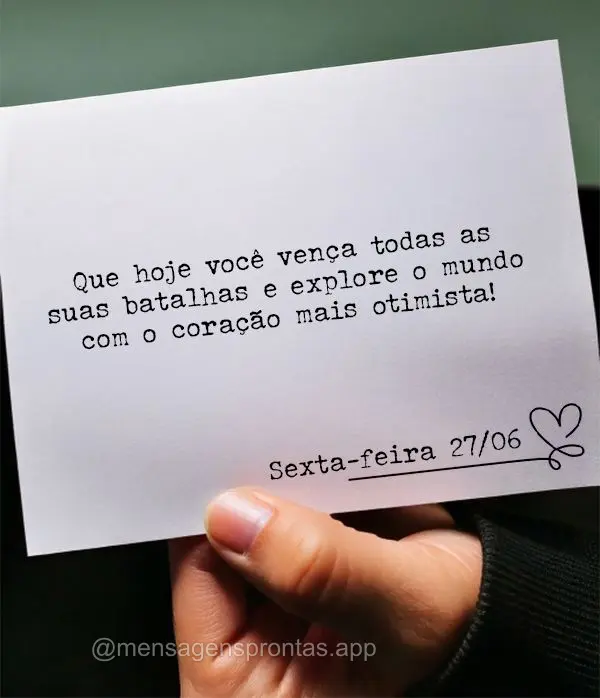 Que hoje você vença todas as
suas batalhas e explore o mundo
com o coração mais otimista!
Sexta-feira 27/06
@mensagensprontas.app